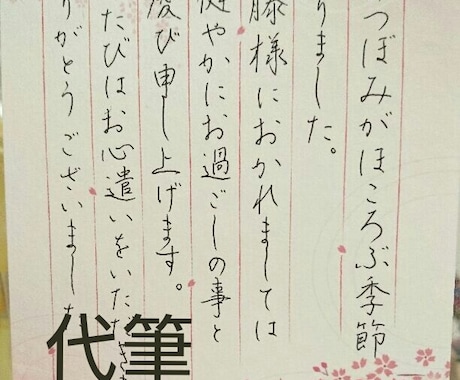 つぼみがほころぶ季節
りました。
藤様におかれましては
健やかにお過ごしの事と
慶び申し上げます。
たびはお心遣いをいただき
りがとうございました
代筆